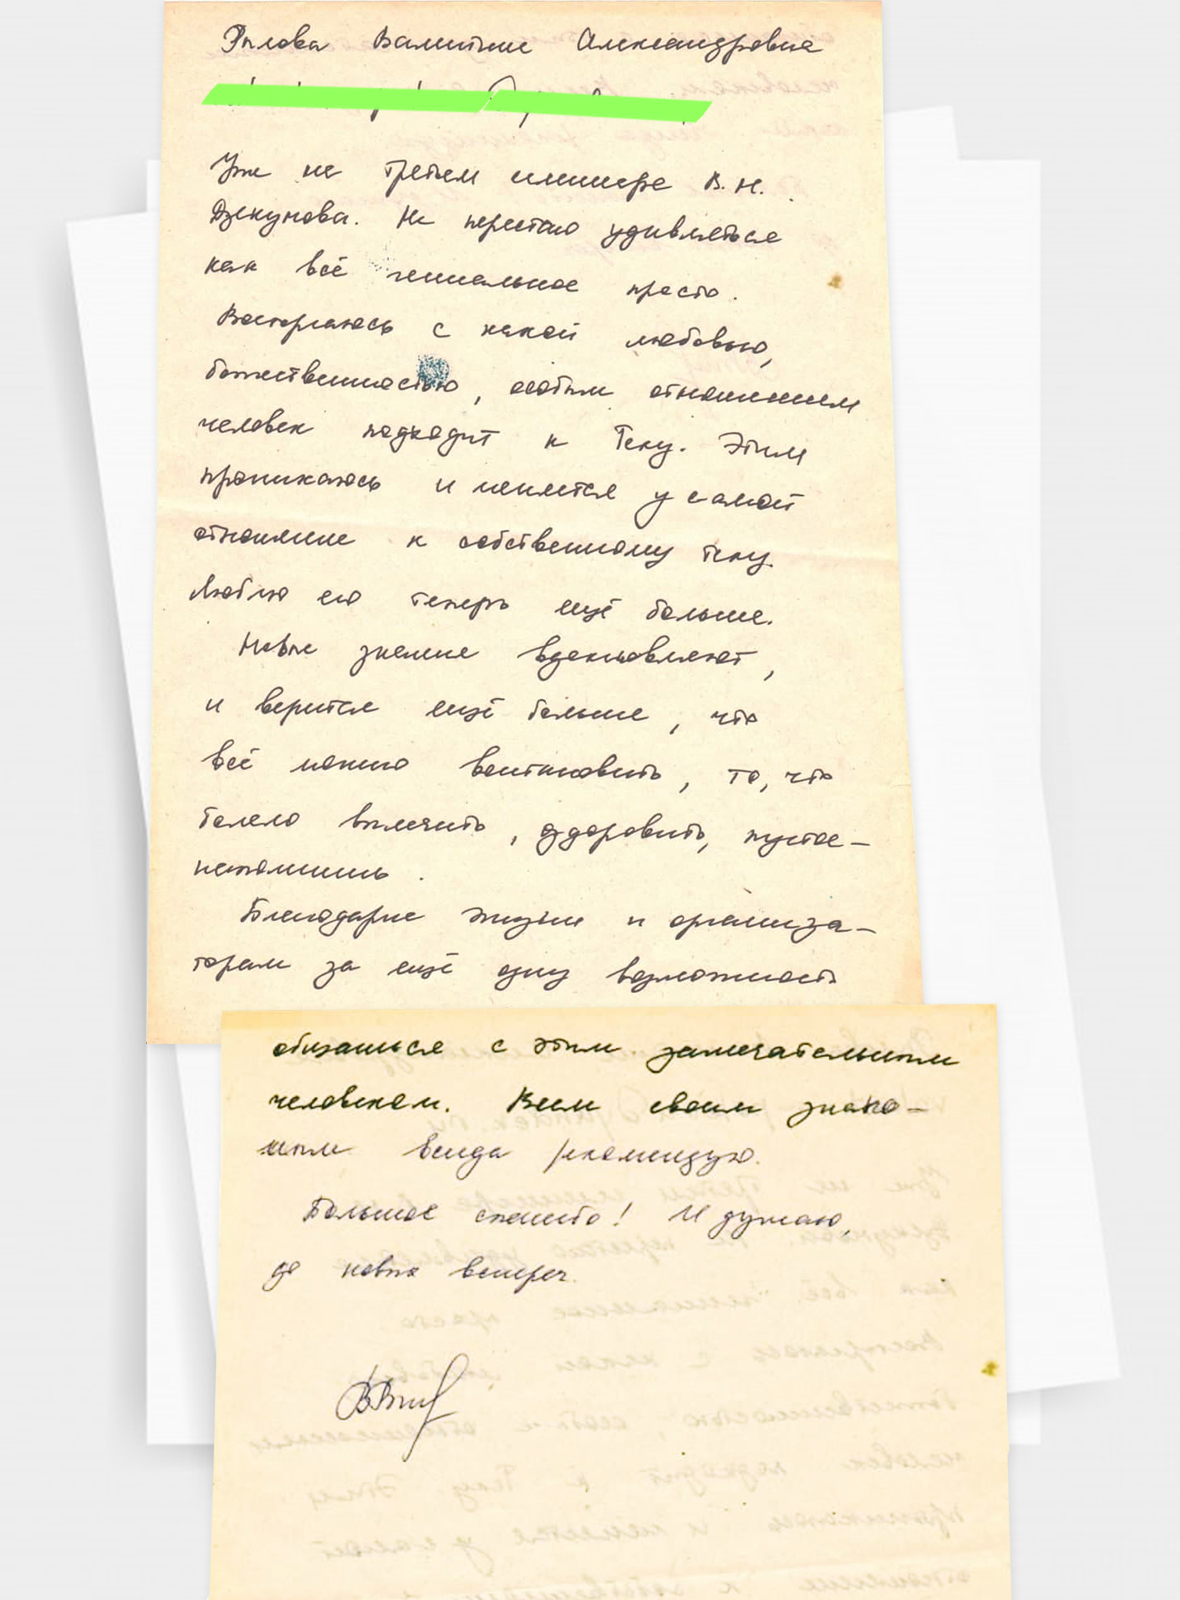 Валентина Александровна
Уже на третьем семинаре В.Н.
Дзекунова. Не перестаю удивляться
как всё гениальное просто.
Восторгаюсь с какой любовью,
божественностью, особым отношением
человек подходит к Телу. Этим
проникаюсь и меняется у самой
отношение к собственному телу
Люблю его теперь ещё больше.
Новые знание вдохновляют,
и верится ещё больше, что
всё можно востановить, то, что
болело вылечить, оздоровить, пустое-
наполнить.
Благодарю жизнь и организа-
торам за ещё одну возможность
общаться с этим замечательным
человеком. Всем своим знако-
мым всегда рекомендую.
Большое спасибо! И думаю,
до новых встреч.